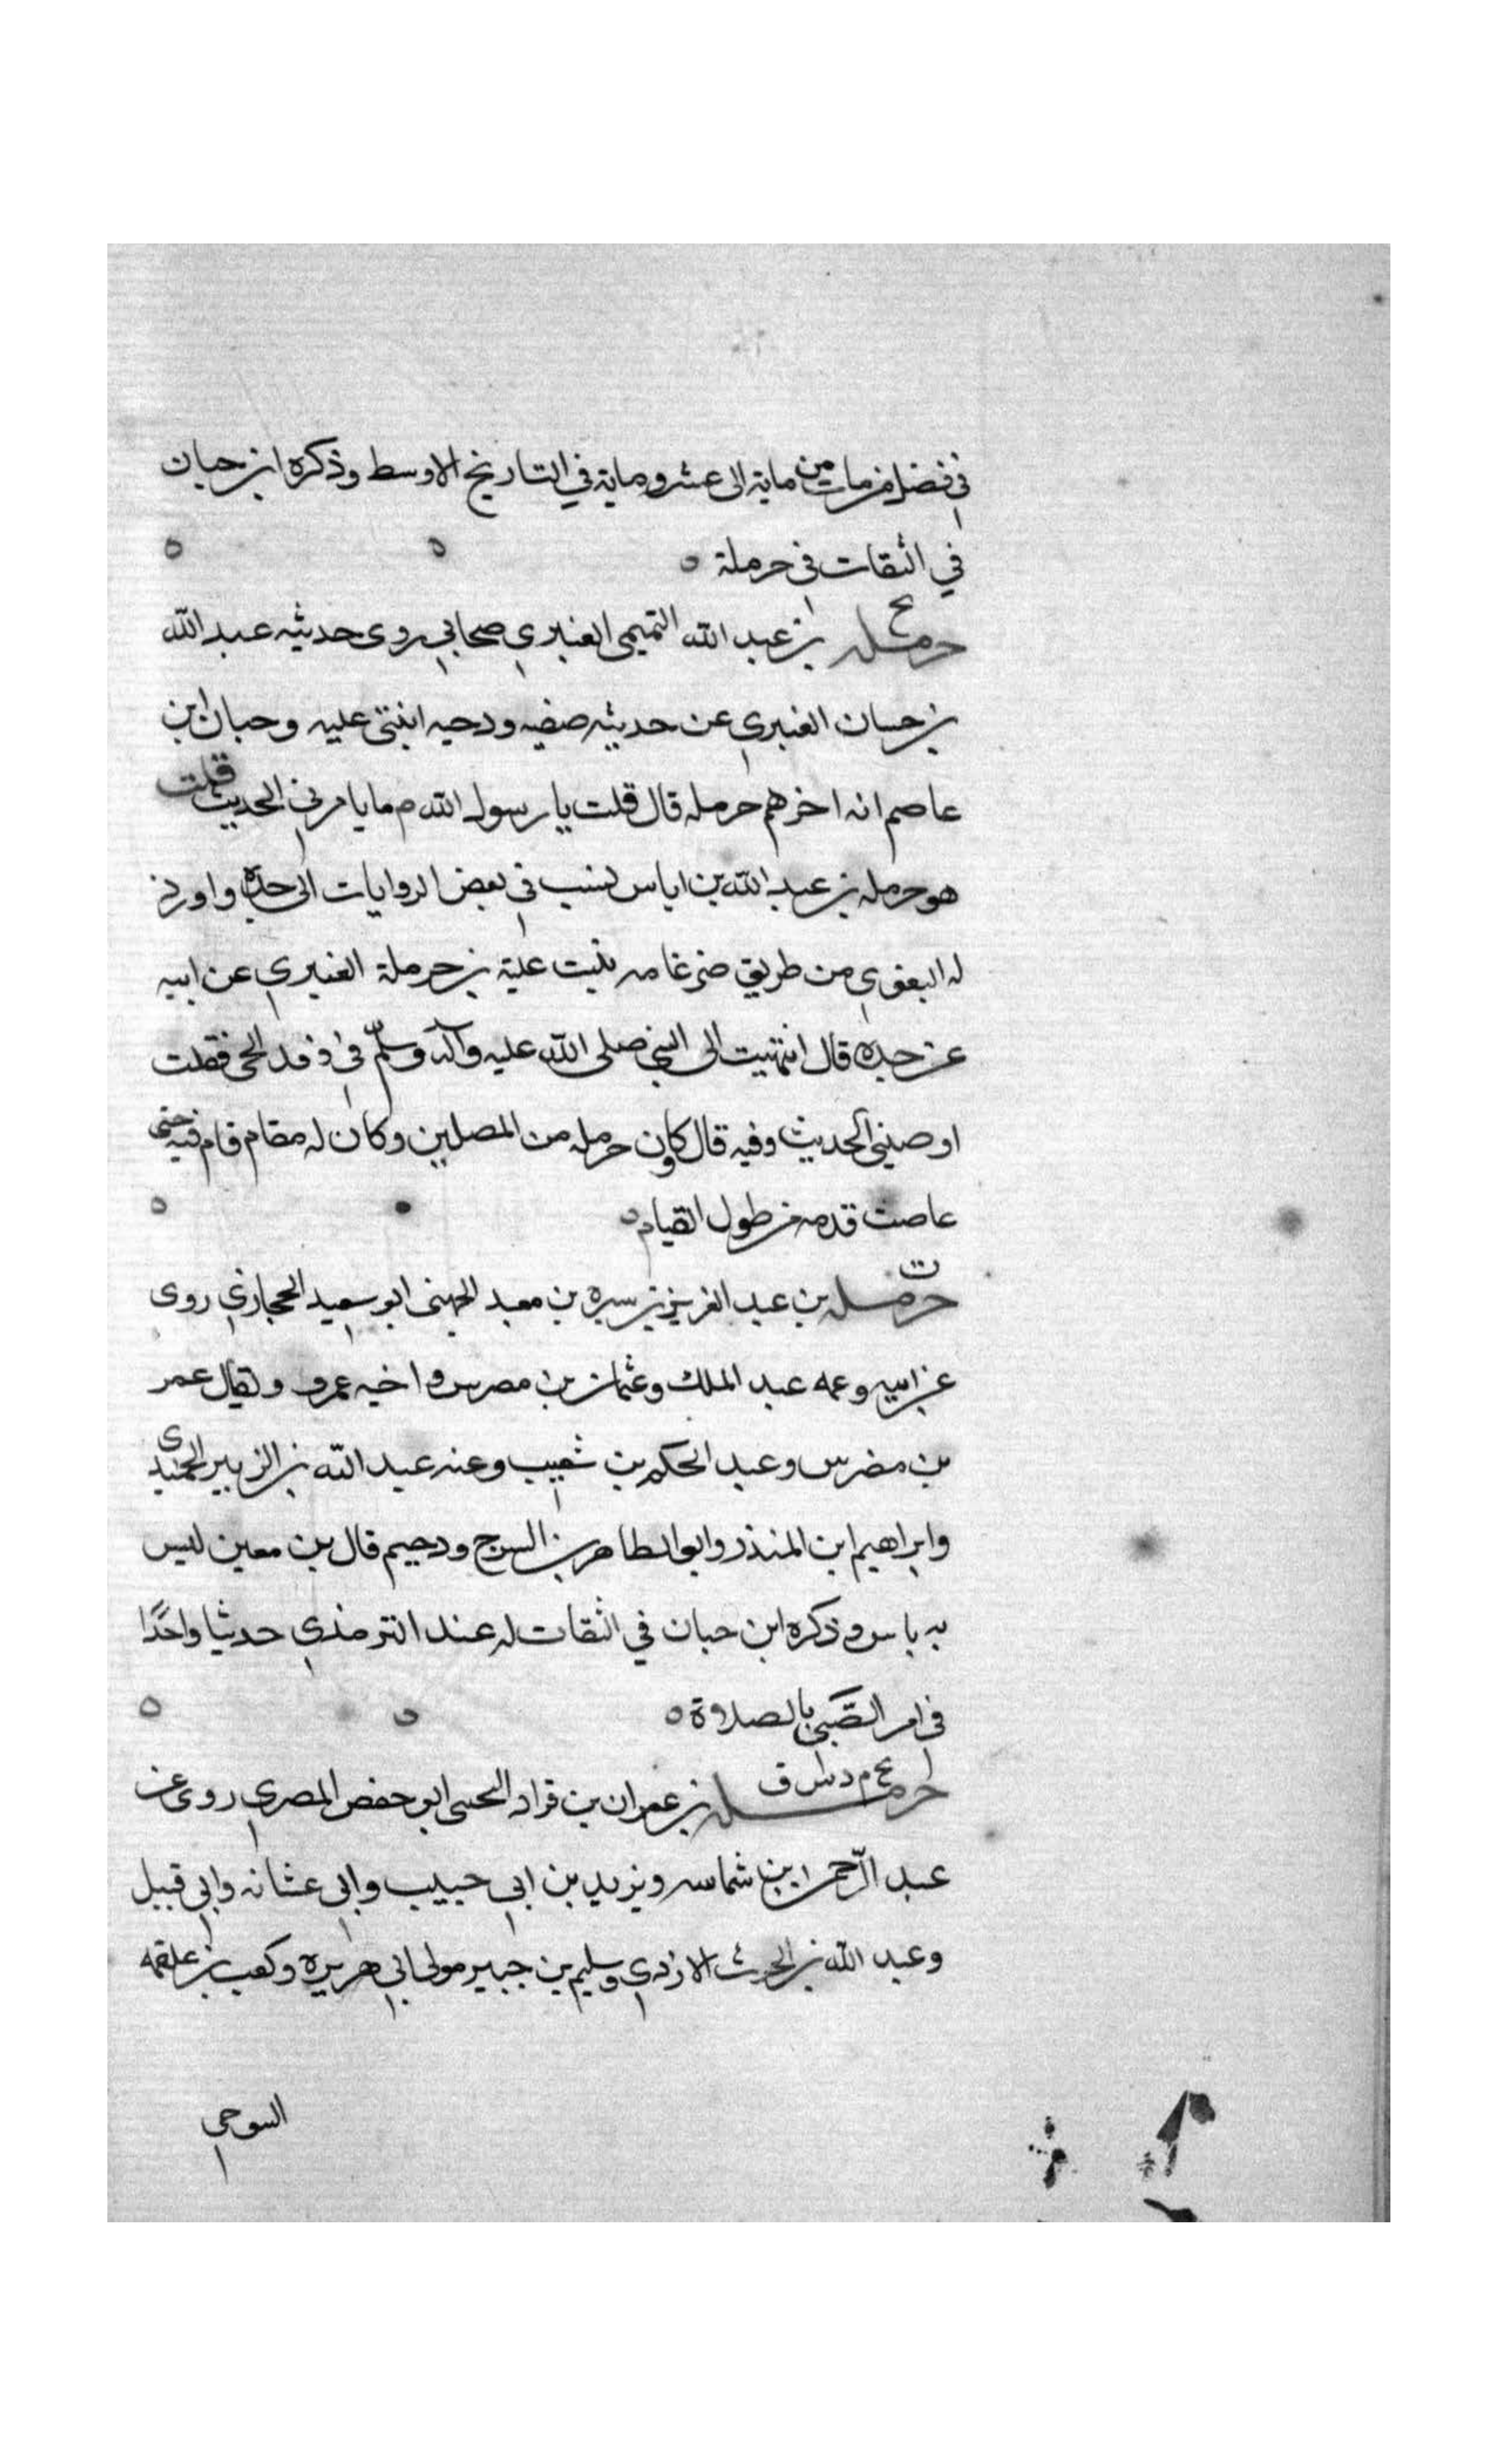 في فضل من مات من ماية الى عشر وماية في التاريخ الاوسط وذكره ابن حبان
في الثقات في حرملة ه ه ه
بخ
حرمله بن عبد الله التميمي العنبري صحابي روى حديثه عبد الله
بن حسان العنبري عن حديثه صفيه ودحيه ابنتي عليه وحبان ابن
عاصم انه اخرهم حرمله قال قلت يا رسول الله م ما يامرني الحديث قلت
هو حرمله بن عبد الله بن اياس نسب في بعض الروايات الى جده واورد
له البغوي من طريق ضرغامه بنيت علية بن حرملة العنبري عن ابيه
عن جده قال انتهيت الى النبي صلى الله عليه وآله وسلم في وفد الحي فقلت
اوصيني الحديث وفيه قال كان حرمله من المصلين وكان له مقام قام فيه حتى
عاصت قدمه من طول القيام ه ه
ت
حرمله بن عبد العزيز بن سبره بن معبد الجهني ابو سعيد الحجازي روى
عن ابيه وعمه عبد الملك وعثمان بن مصرس واخيه عمرو ويقال عمر
بن مضرس وعبد الحكم بن شعيب وعنه عبد الله بن الزبير الحميدي
وابراهيم ابن المنذر وابو الطاهر بن السرج ودحيم قال بن معين ليس
به باس وذكره ابن حبان في الثقات له عند الترمذي حديثا واحدا
في امر الصبي بالصلاوة ه ه ه
بخ م د س ق
حرمله بن عمران بن قراد التحيى ابو حفص المصري روى عن
عبد الرحمن ابن شماسه ويزيد بن ابي حبيب وابي عشانه وابي قبيل
وعبد الله بن الحرث الازدي وسليم بن جبير مولى ابي هريره وكعب بن علقمه
السوحي